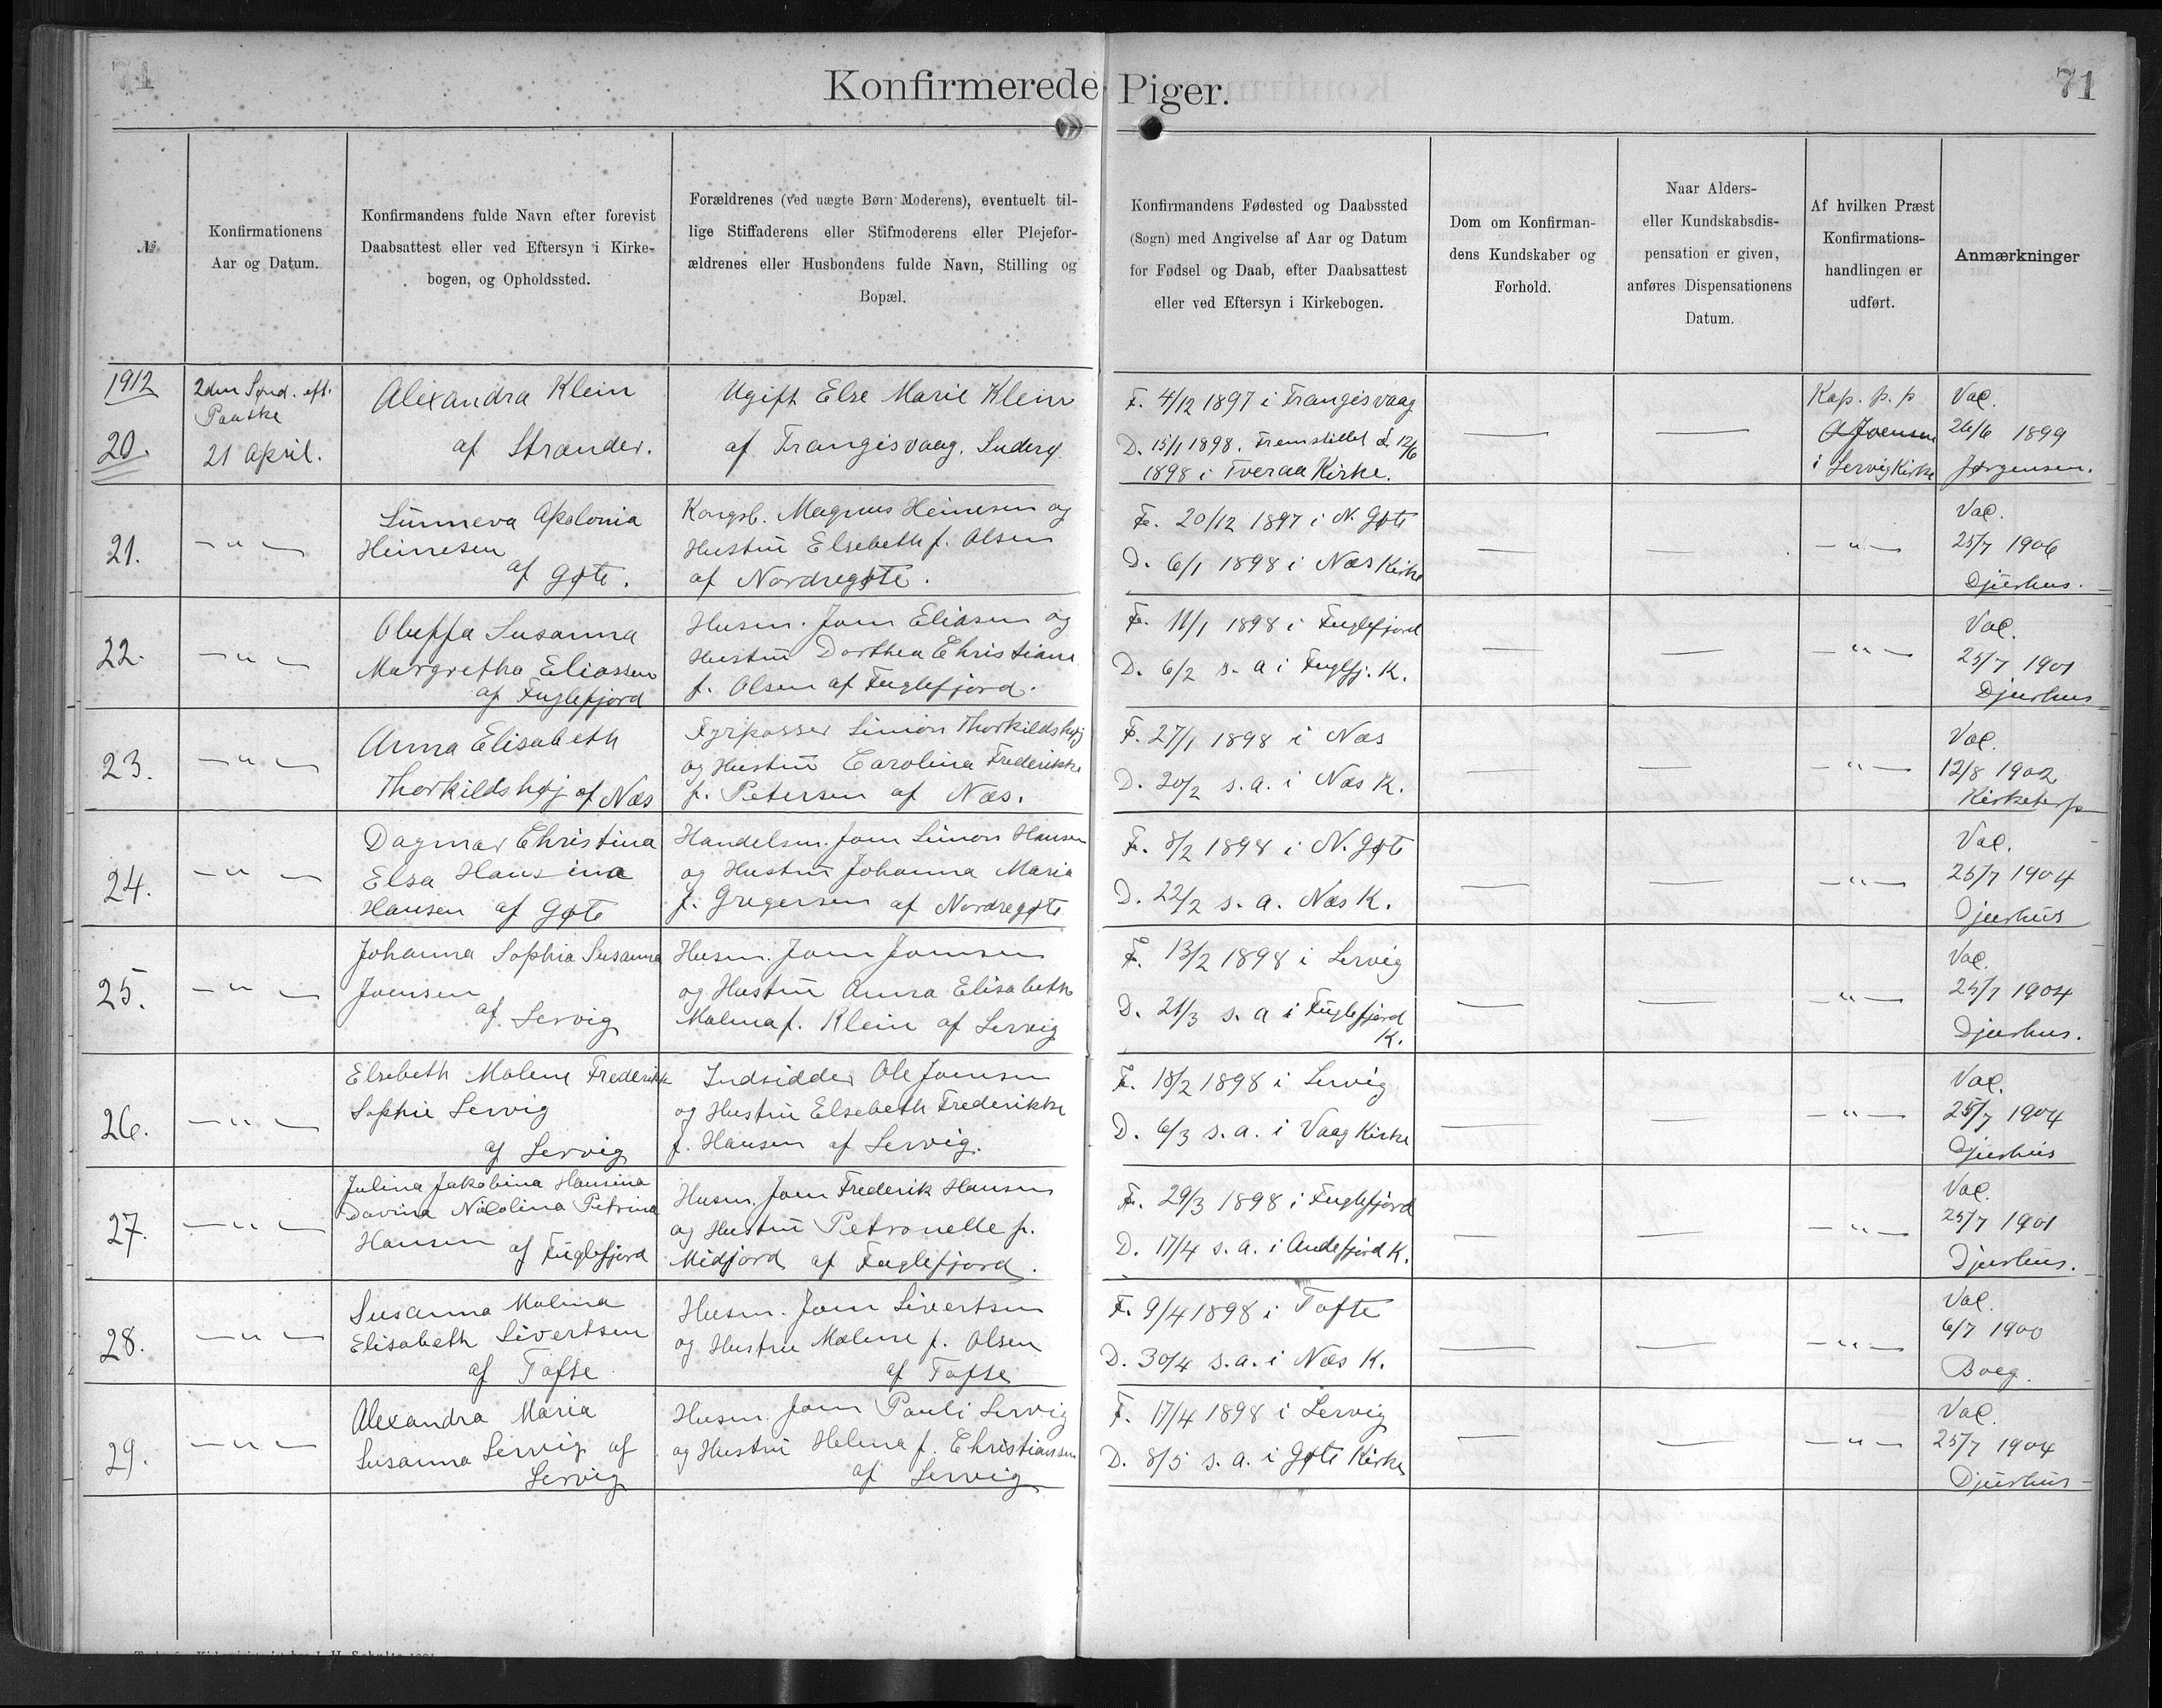 71
Konfirmerede Piger.
71
№
Konfirmationens
Aar og Datum.
Konfirmandens fulde Navn efter forevist
Daabsattest eller ved Eftersyn i Kirke-
bogen, og Opholdssted.
Forældrenes (ved uægte Børn Moderens), eventuelt til-
lige Stiffaderens eller Stifmoderens eller Plejefor-
ældrenes eller Husbondens fulde Navn, Stilling og
Bopæl.
Konfirmandens Fødested og Daabssted
(Sogn) med Angivelse af Aar og Datum
for Fødsel og Daab, efter Daabsattest
eller ved Eftersyn i Kirkebogen.
Dom om Konfirman-
dens Kundskaber og
Forhold.
Naar Alders-
eller Kundskabsdis-
pensation er given,
anføres Dispensationens
Datum.
Af hvilken Præst
Konfirmations-
handlingen er
udført.
Anmærkninger
1912
20.
2den Sønd. eft.
Paaske
21 April.
Alexandra Klein
af Strander.
Ugift Else Marie Klein
af Trangisvaag. Suderø
F. 4/12 1897 i Trangisvaag
D. 15/1 1898. Fremstillet d. 12/6
1898 i Tveraa Kirke.
Kap. p. p
A Joensen
i Lervig Kirke
Vac.
26/6 1899
Jørgensen.
21.
— " —
Sunneva Apolonia
Heinesen
af Gøte.
Kongsb. Magnus Heinesen og
Hustru Elsebeth f. Olsen
af Nordregøte.
F. 20/12 1897 i N. Gøte
D. 6/1 1898 i Næs Kirke
— " —
Vac.
25/7 1906
Djurhus.
22.
— " —
Oluffa Susanna
Margretha Eliassen
af Fuglefjord
Husm. Joen Eliasen og
Hustru Dorthea Christiane
f. Olsen af Fuglefjord.
F. 11/1 1898 i Fuglefjord
D. 6/2 s. a i Fuglfj. K.
— " —
Vac.
25/7 1901
Djurhus
23.
— " —
Anna Elisabeth
Thorkildshøj af Næs
Fyrpasser Simon Thorkildshøj
og Hustru Carolina Frederikke
f. Petersen af Næs.
F. 27/1 1898 i Næs
D. 20/2 s. a. i Næs K.
— " —
Vac.
12/8 1902
Kirketerp
24.
— " —
Dagmar Christina
Elsa Hansina
Hansen af Gøte
Handelsm. Joen Simon Hansen
og Hustru Johanna Maria
f. Gregersen af Nordregøte
F. 8/2 1898 i N. Gøte
D. 22/2 s. a. Næs K.
— " —
Vac.
25/7 1904
Djurhus
25.
— " —
Johanna Sophia Susanna
Joensen
af Lervig
Husm. Joen Joensen
og Hustru Anna Elisabeth
Malena f. Klein af Lervig
F. 13/2 1898 i Lervig
D. 21/3 s. a i Fuglefjord
K.
— " —
Vac.
25/7 1904
Djurhus.
26.
— " —
Elsebeth Malene Frederikk
Sophie Lervig
af Lervig
Indsidder Ole Joensen
og Hustru Elsebeth Frederikke
f. Hansen af Lervig.
F. 18/2 1898 i Lervig
D. 6/3 s. a. i Vaag Kirke
— " —
Vac.
25/7 1904
Djurhus
27.
— " —
Julina Jakobina Hansina
Davina Nicolina Petrina
Hansen af Fuglefjord
Husm. Joen Frederik Hansen
og Hustru Petronelle f.
Midjord af Fuglefjord.
F. 29/3 1898 i Fuglefjord
D. 17/4 s. a. i Andefjord K.
— " —
Vac.
25/7 1901
Djurhus.
28.
— " —
Susanna Malena
Elisabeth Sivertsen
af Tofte
Husm. Joen Sivertsen
og Hustru Malene f. Olsen
af Tofte
F. 9/4 1898 i Tofte
D. 30/4 s. a. i Næs K.
— " —
Vac.
6/7 1900
Boeg.
29.
— " —
Alexandra Maria
Susanna Lervig af
Lervig
Husm. Joen Pauli Lervig
og Hustru Helena f. Christiansen
af Lervig
F. 17/4 1898 i Lervig
D. 8/5 s. a. i Gøte Kirke
— " —
Vac.
25/7 1904
Djurhus